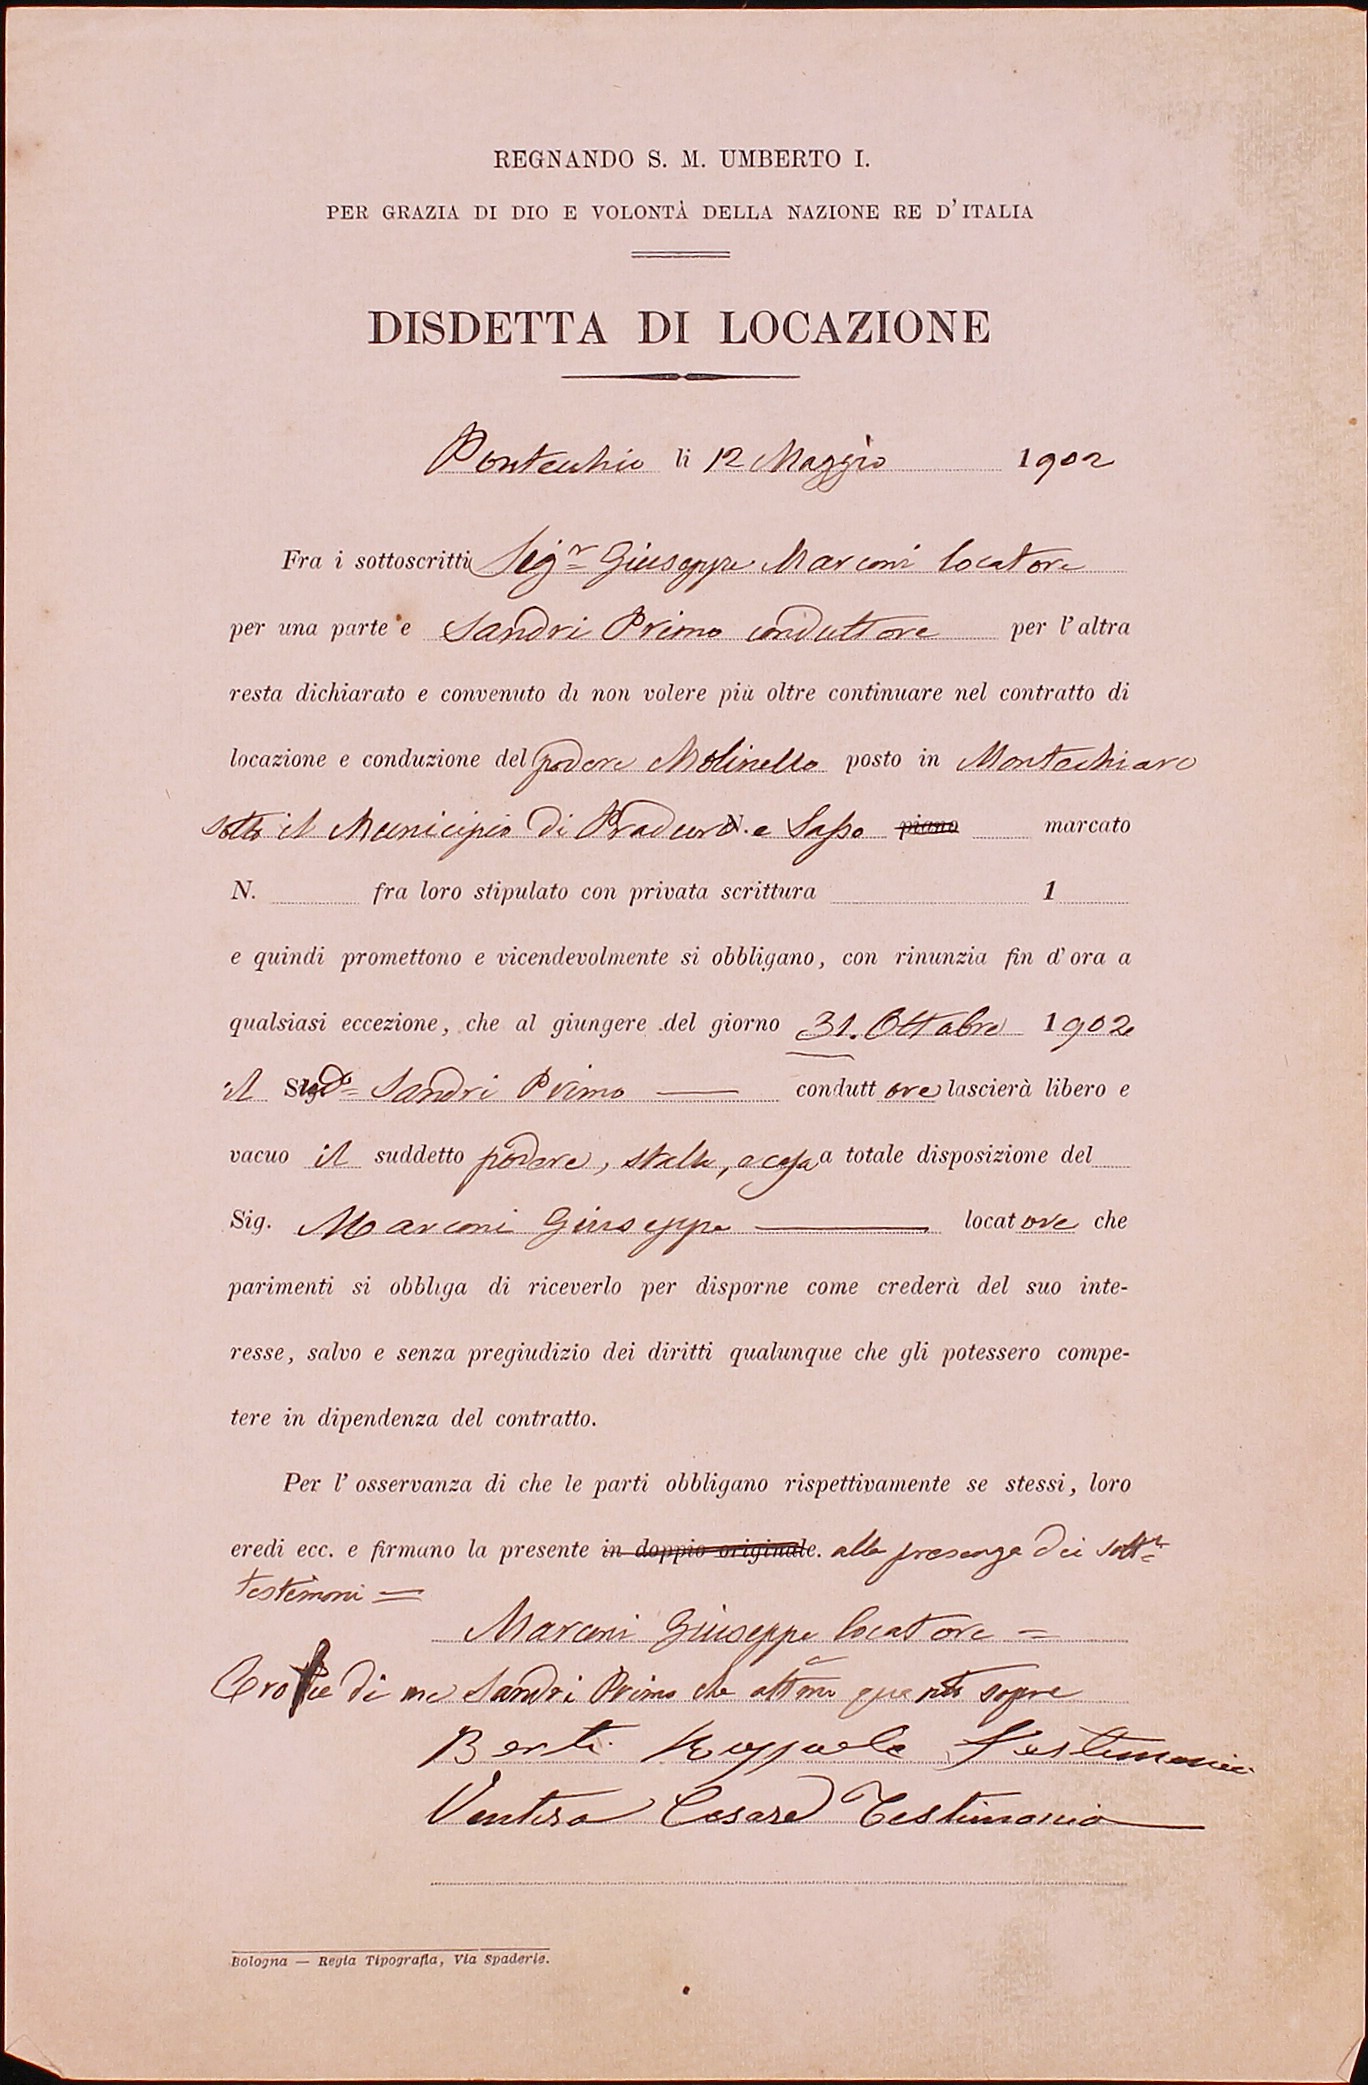 REGNANDO S. M. UMBERTO I.
PER GRAZIA DI DIO E VOLONTÀ DELLA NAZIONE RE D'ITALIA
DISDETTA DI LOCAZIONE
Pontecchio li 12 Maggio 1902
Fra i sottoscritti Sigr Giuseppe Marconi locatore
per una parte e Sandri Primo conduttore per l'altra
resta dichiarato e convenuto di non volere più oltre continuare nel contratto di
locazione e conduzione del podere Molinello posto in Montechiaro
sotto il Municipio di Praduro N. e Sasso piano marcato
N. fra loro stipulato con privata scrittura 1
e quindi promettono e vicendevolmente si obbligano, con rinunzia fin d'ora a
qualsiasi eccezione, che al giungere del giorno 31. Ottobre 1902
il Sandri Primo conduttore lascierà libero e
vacuo il suddetto podere, stalla, e casa a totale disposizione del
Sig. Marconi Giuseppe locatore che
parimenti si obbliga di riceverlo per disporne come crederà del suo inte-
resse, salvo e senza pregiudizio dei diritti qualunque che gli potessero compe-
tere in dipendenza del contratto.
Per l'osservanza di che le parti obbligano rispettivamente se stessi, loro
eredi ecc. e firmano la presente in doppio originale. alla presenza dei sotti
testimoni =
Marconi Giuseppe locatore =
Croce di me Sandri Primo che quanto sopra
Berti Raffaele Testimonio
Cesare Testimonio
Bologna — Regia Tipografia, Via Spaderie.